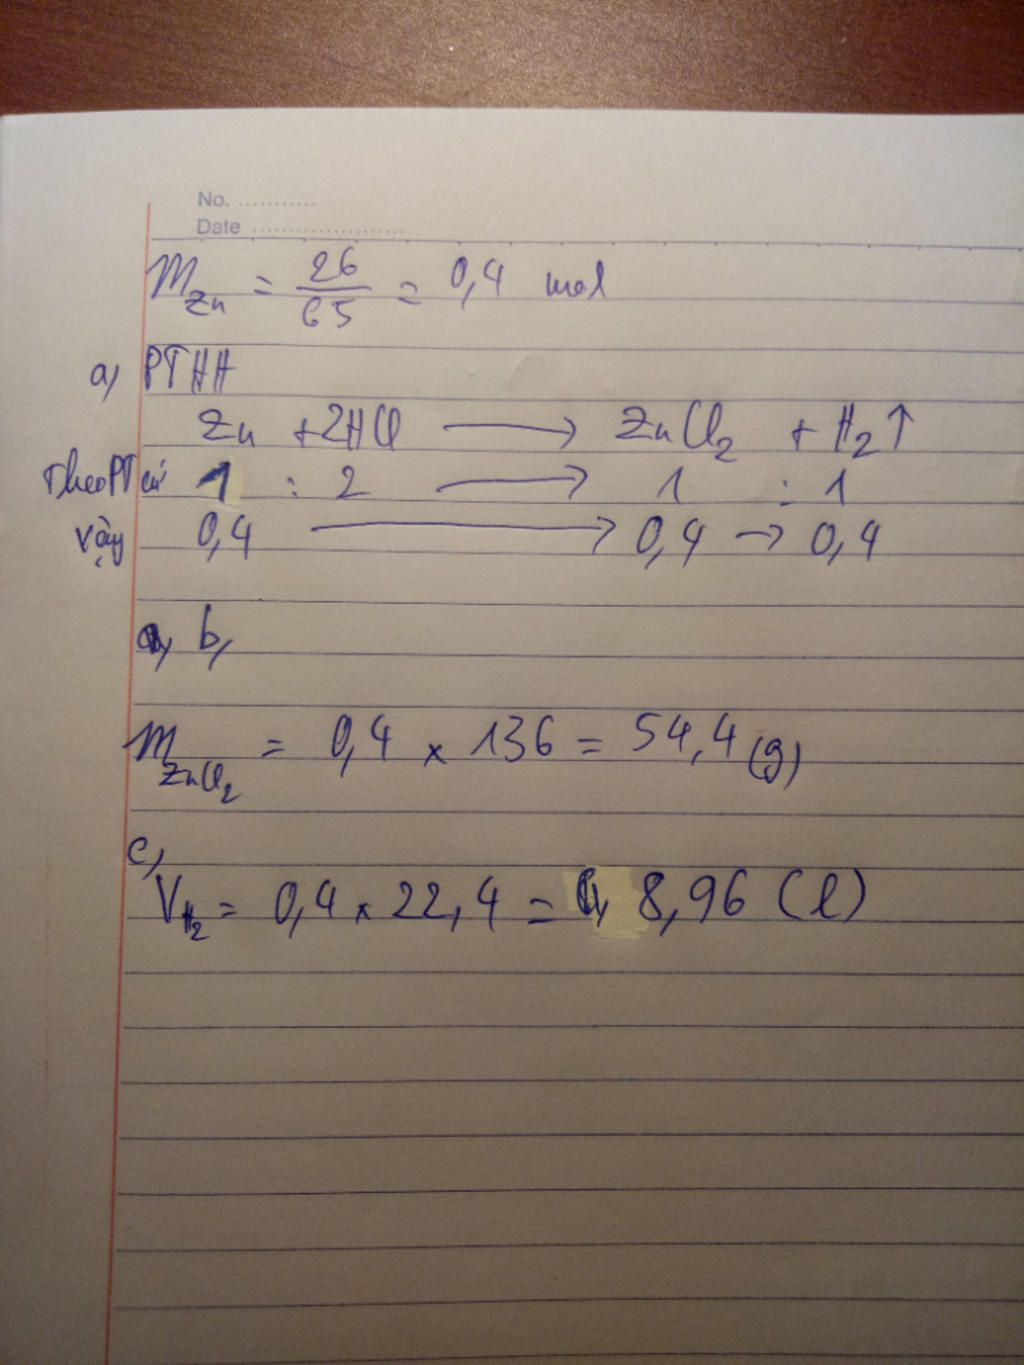 No. ...........
Date .....................
m Zn = 26/65 = 0,4 mol
a, PTHH
Zn + 2HCl ⟶ ZnCl₂ + H₂↑
Theo PT cứ 1 : 2 ⟶ 1 : 1
Vậy 0,4 ⟶ 0,4 → 0,4
b,
m ZnCl₂ = 0,4 × 136 = 54,4 (g)
c,
V H₂ = 0,4 × 22,4 = 8,96 (l)